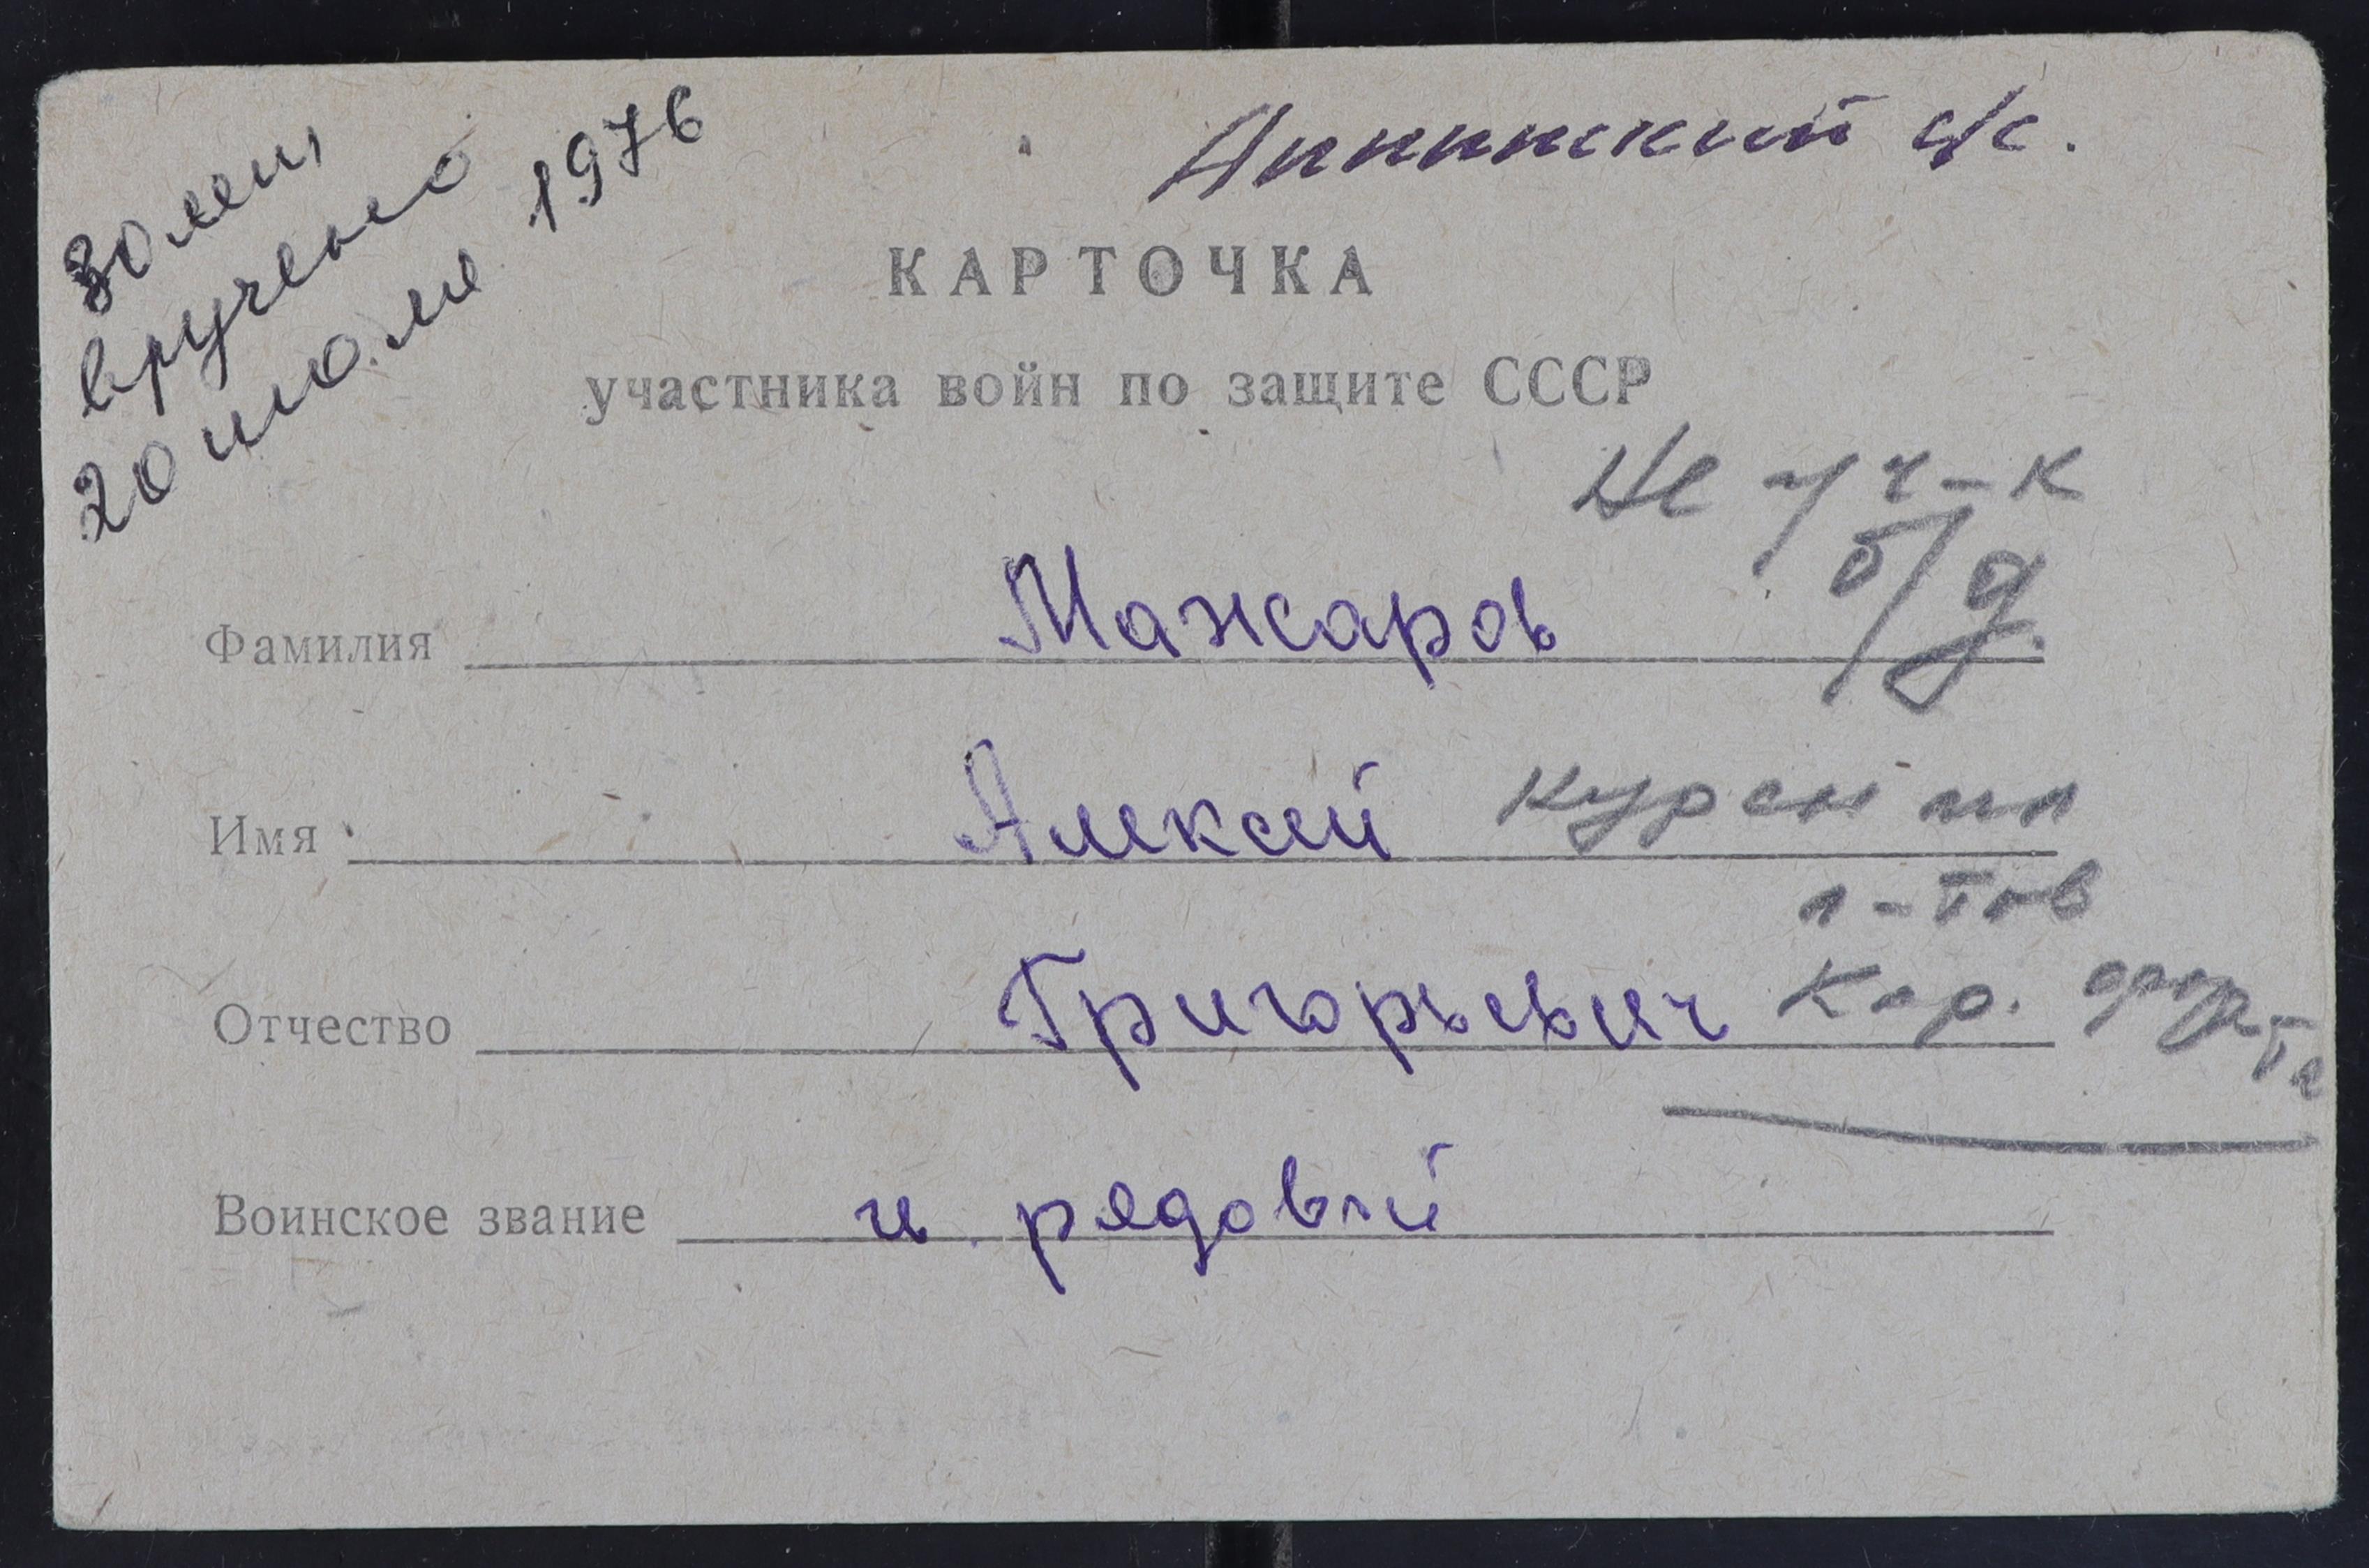 30 лет,
вручено
20 июля 1976
с/с.
КАРТОЧКА
участника войн по защите СССР
Не уч-к
б/д.
Фамилия Мажаров
Имя Алексей курсы мл
л-тов
Отчество Григорьевич Кар. фр-та
Воинское звание рядовой